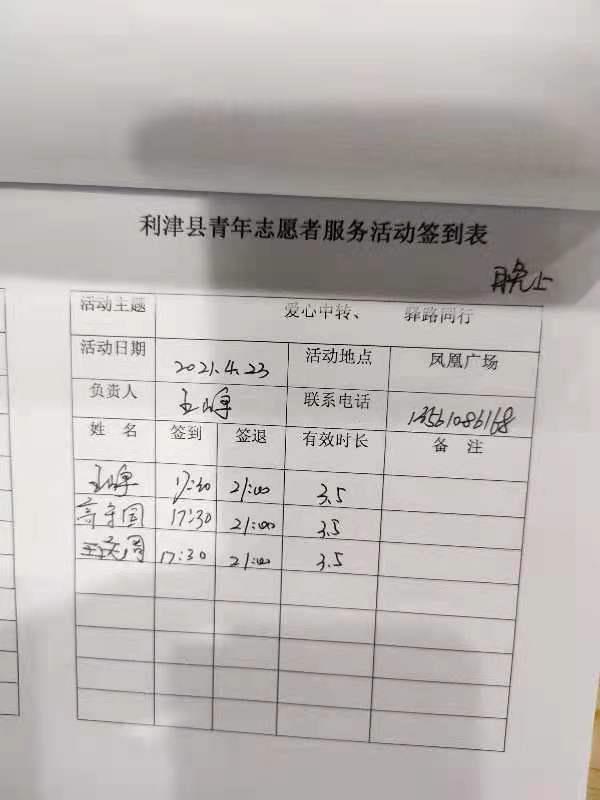 利津县青年志愿者服务活动签到表
晚上
活动主题 爱心中转、 驿路同行
活动日期 2021.4.23 活动地点 凤凰广场
负责人 王峰 联系电话 13561086168
姓名 签到 签退 有效时长 备注
王峰 17:30 21:00 3.5
高守国 17:30 21:00 3.5
17:30 21:00 3.5